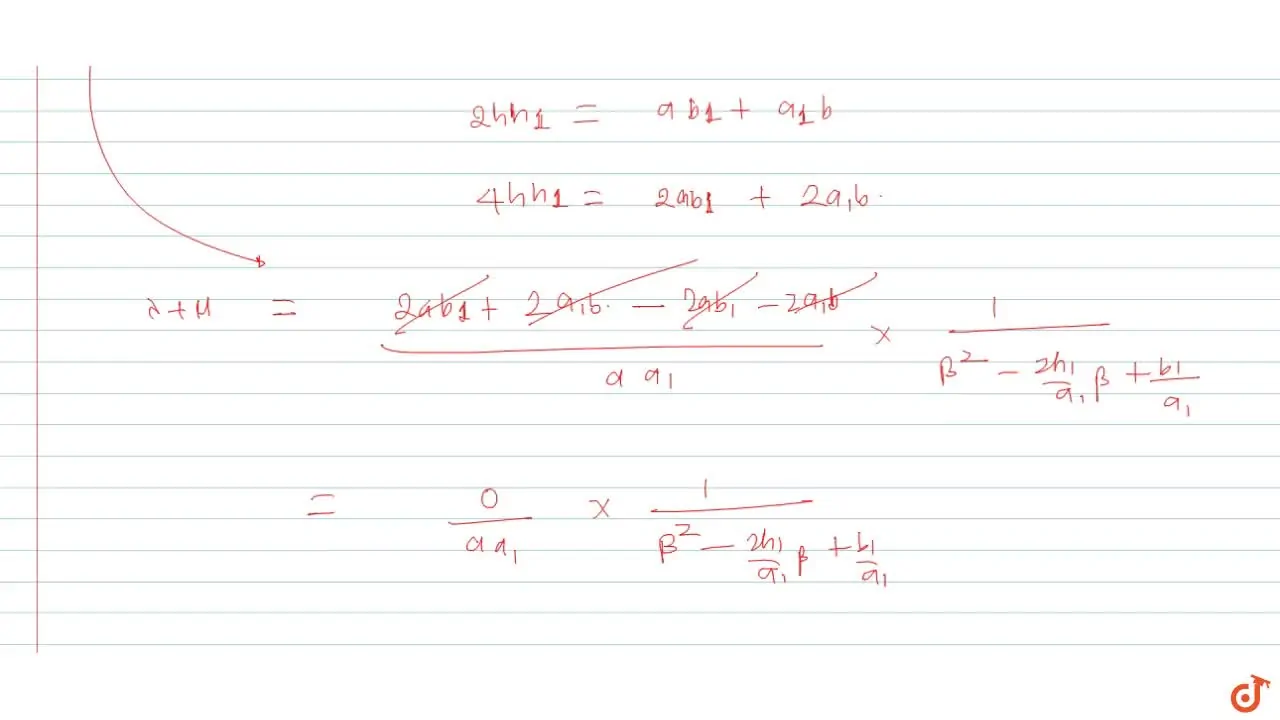 2hh1 = ab1 + a1b
4hh1 = 2ab1 + 2a1b.
λ+μ = (2ab1 + 2a1b. − 2ab1 − 2a1b)/(a a1) × 1/(β² − 2h1/a1 β + b1/a1)
= 0/(a a1) × 1/(β² − 2h1/a1 β + b1/a1)